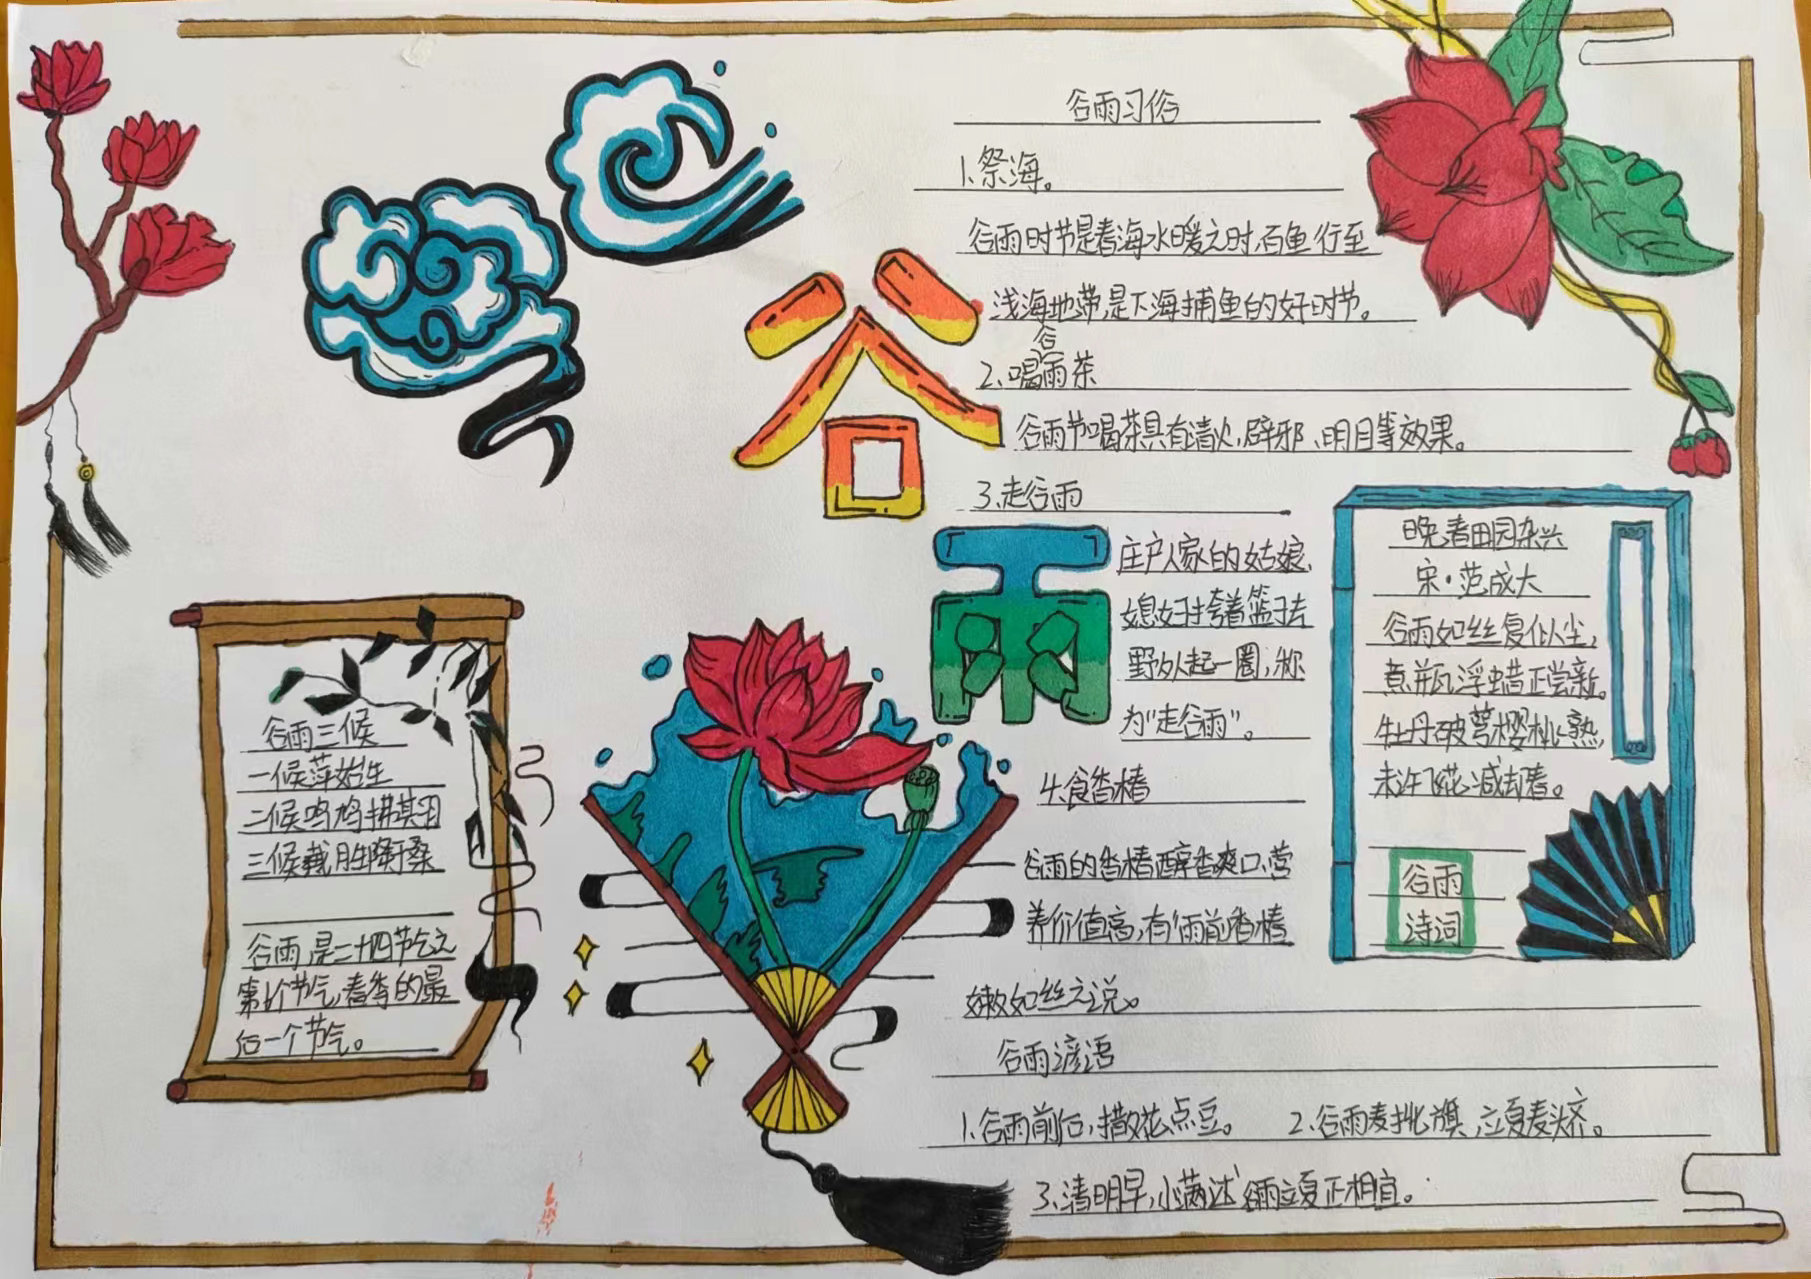 谷雨
谷雨习俗
1.祭海。
谷雨时节是春海水暖之时,百鱼行至
浅海地带,是下海捕鱼的好时节。
2.喝谷雨茶
谷雨节喝茶具有清火,辟邪、明目等效果。
3.走谷雨
庄户人家的姑娘、
媳妇挎着篮子去
野外走起一圈,称
为“走谷雨”。
4.食香椿
谷雨的香椿醇香爽口,营
养价值高,有“雨前香椿
嫩如丝之说。
谷雨谚语
1.谷雨前后,撒花点豆。 2.谷雨麦挑旗,立夏麦头齐。
3.清明早,小满迟,谷雨立夏正相宜。
谷雨三候
一候萍始生
二候鸣鸠拂其羽
三候戴胜降桑
谷雨,是二十四节气之
第6个节气,春季的最
后一个节气。
晚春田园杂兴
宋·范成大
谷雨如丝复似尘,
煮瓶浮蜡正尝新。
牡丹破萼樱桃熟,
未许飞花减却春。
谷雨
诗词